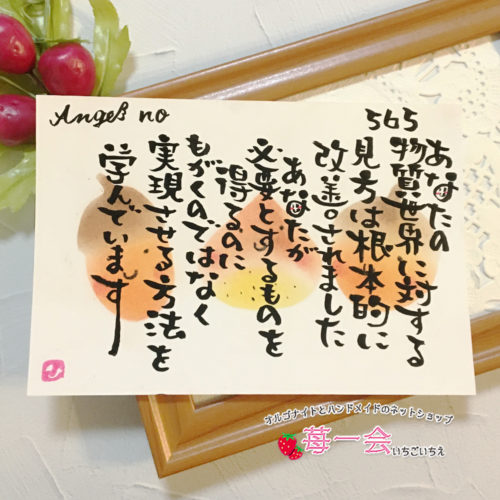 Angel's no
565
あなたの
物質世界に対する
見方は根本的に
改善されました
あなたが
必要とするものを
得るのに
もがくのではなく
実現させる方法を
学んでいます
オルゴナイトとハンドメイドのネットショップ
苺一会
いちごいちえ